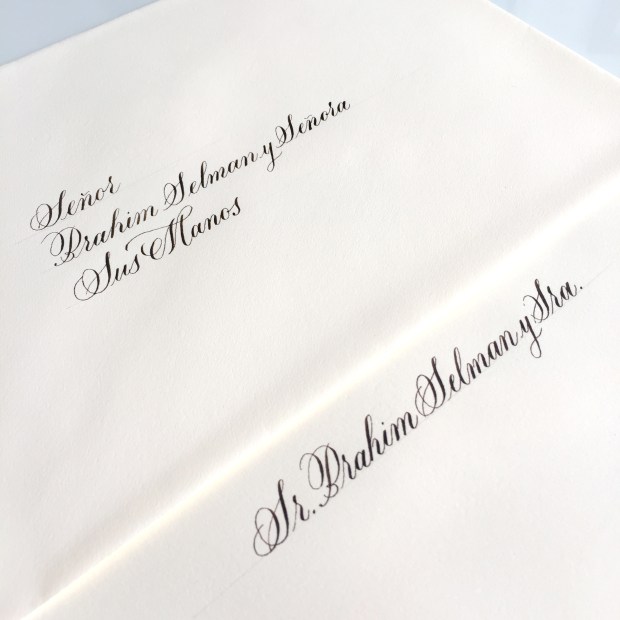 Señor
Brahim Selman y Señora
Sus Manos
Sr. Brahim Selman y Sra.